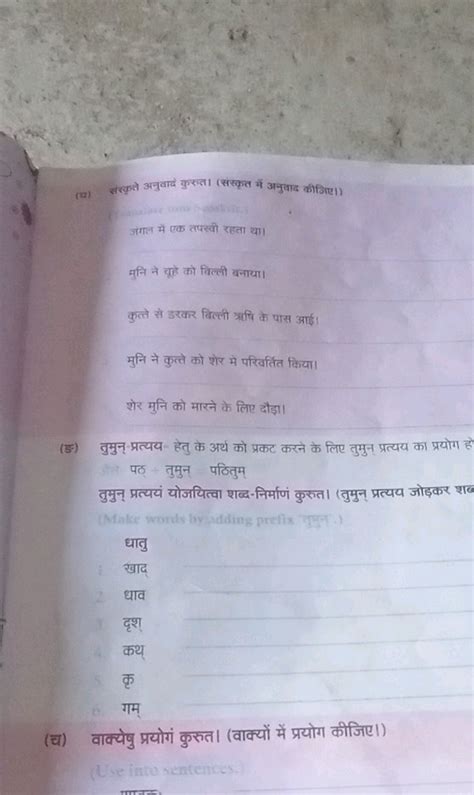 (घ) संस्कृते अनुवादं कुरुत। (संस्कृत में अनुवाद कीजिए।)
(Translate into Sanskrit.)
जंगल में एक तपस्वी रहता था।
मुनि ने चूहे को बिल्ली बनाया।
कुत्ते से डरकर बिल्ली ऋषि के पास आई।
मुनि ने कुत्ते को शेर में परिवर्तित किया।
शेर मुनि को मारने के लिए दौड़ा।
(ङ) तुमुन्-प्रत्यय- हेतु के अर्थ को प्रकट करने के लिए तुमुन् प्रत्यय का प्रयोग हो
जैसे- पठ् + तुमुन् = पठितुम्
तुमुन् प्रत्ययं योजयित्वा शब्द-निर्माणं कुरुत। (तुमुन् प्रत्यय जोड़कर शब्द
(Make words by adding prefix 'तुमुन्'.)
धातु
1. खाद्
2. धाव
3. दृश्
4. कथ्
5. कृ
6. गम्
(च) वाक्येषु प्रयोगं कुरुत। (वाक्यों में प्रयोग कीजिए।)
(Use into sentences.)